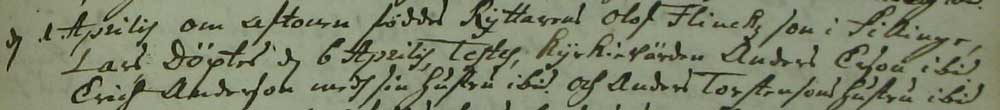 d 1 Aprilis om aftonen föddes Ryttarens Olof Flincks son i Sikinge,
Lars Döptes d 6 Aprilis, Testes, Kyrkiovärden Anders Erson ibid
Erich Anderson medh sin hustru ibid. och Anders Torstensons hustru ibid